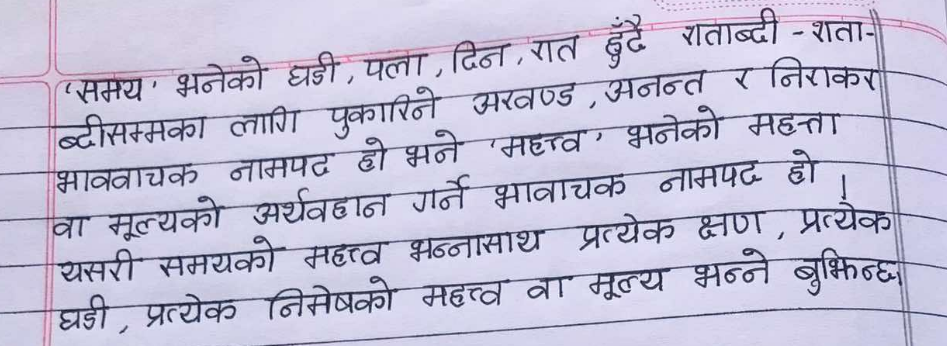 'समय' भनेको घडी, पला, दिन, रात हुँदै शताब्दी - शता-
ब्दीसम्मका लागि पुकारिने अखण्ड, अनन्त र निराकर
भाववाचक नामपद हो भने 'महत्त्व' भनेको महत्ता
वा मूल्यको अर्थवहान गर्ने भावाचक नामपद हो ।
यसरी समयको महत्त्व भन्नासाथ प्रत्येक क्षण, प्रत्येक
घडी, प्रत्येक निमेषको महत्त्व वा मूल्य भन्ने बुझिन्छ।